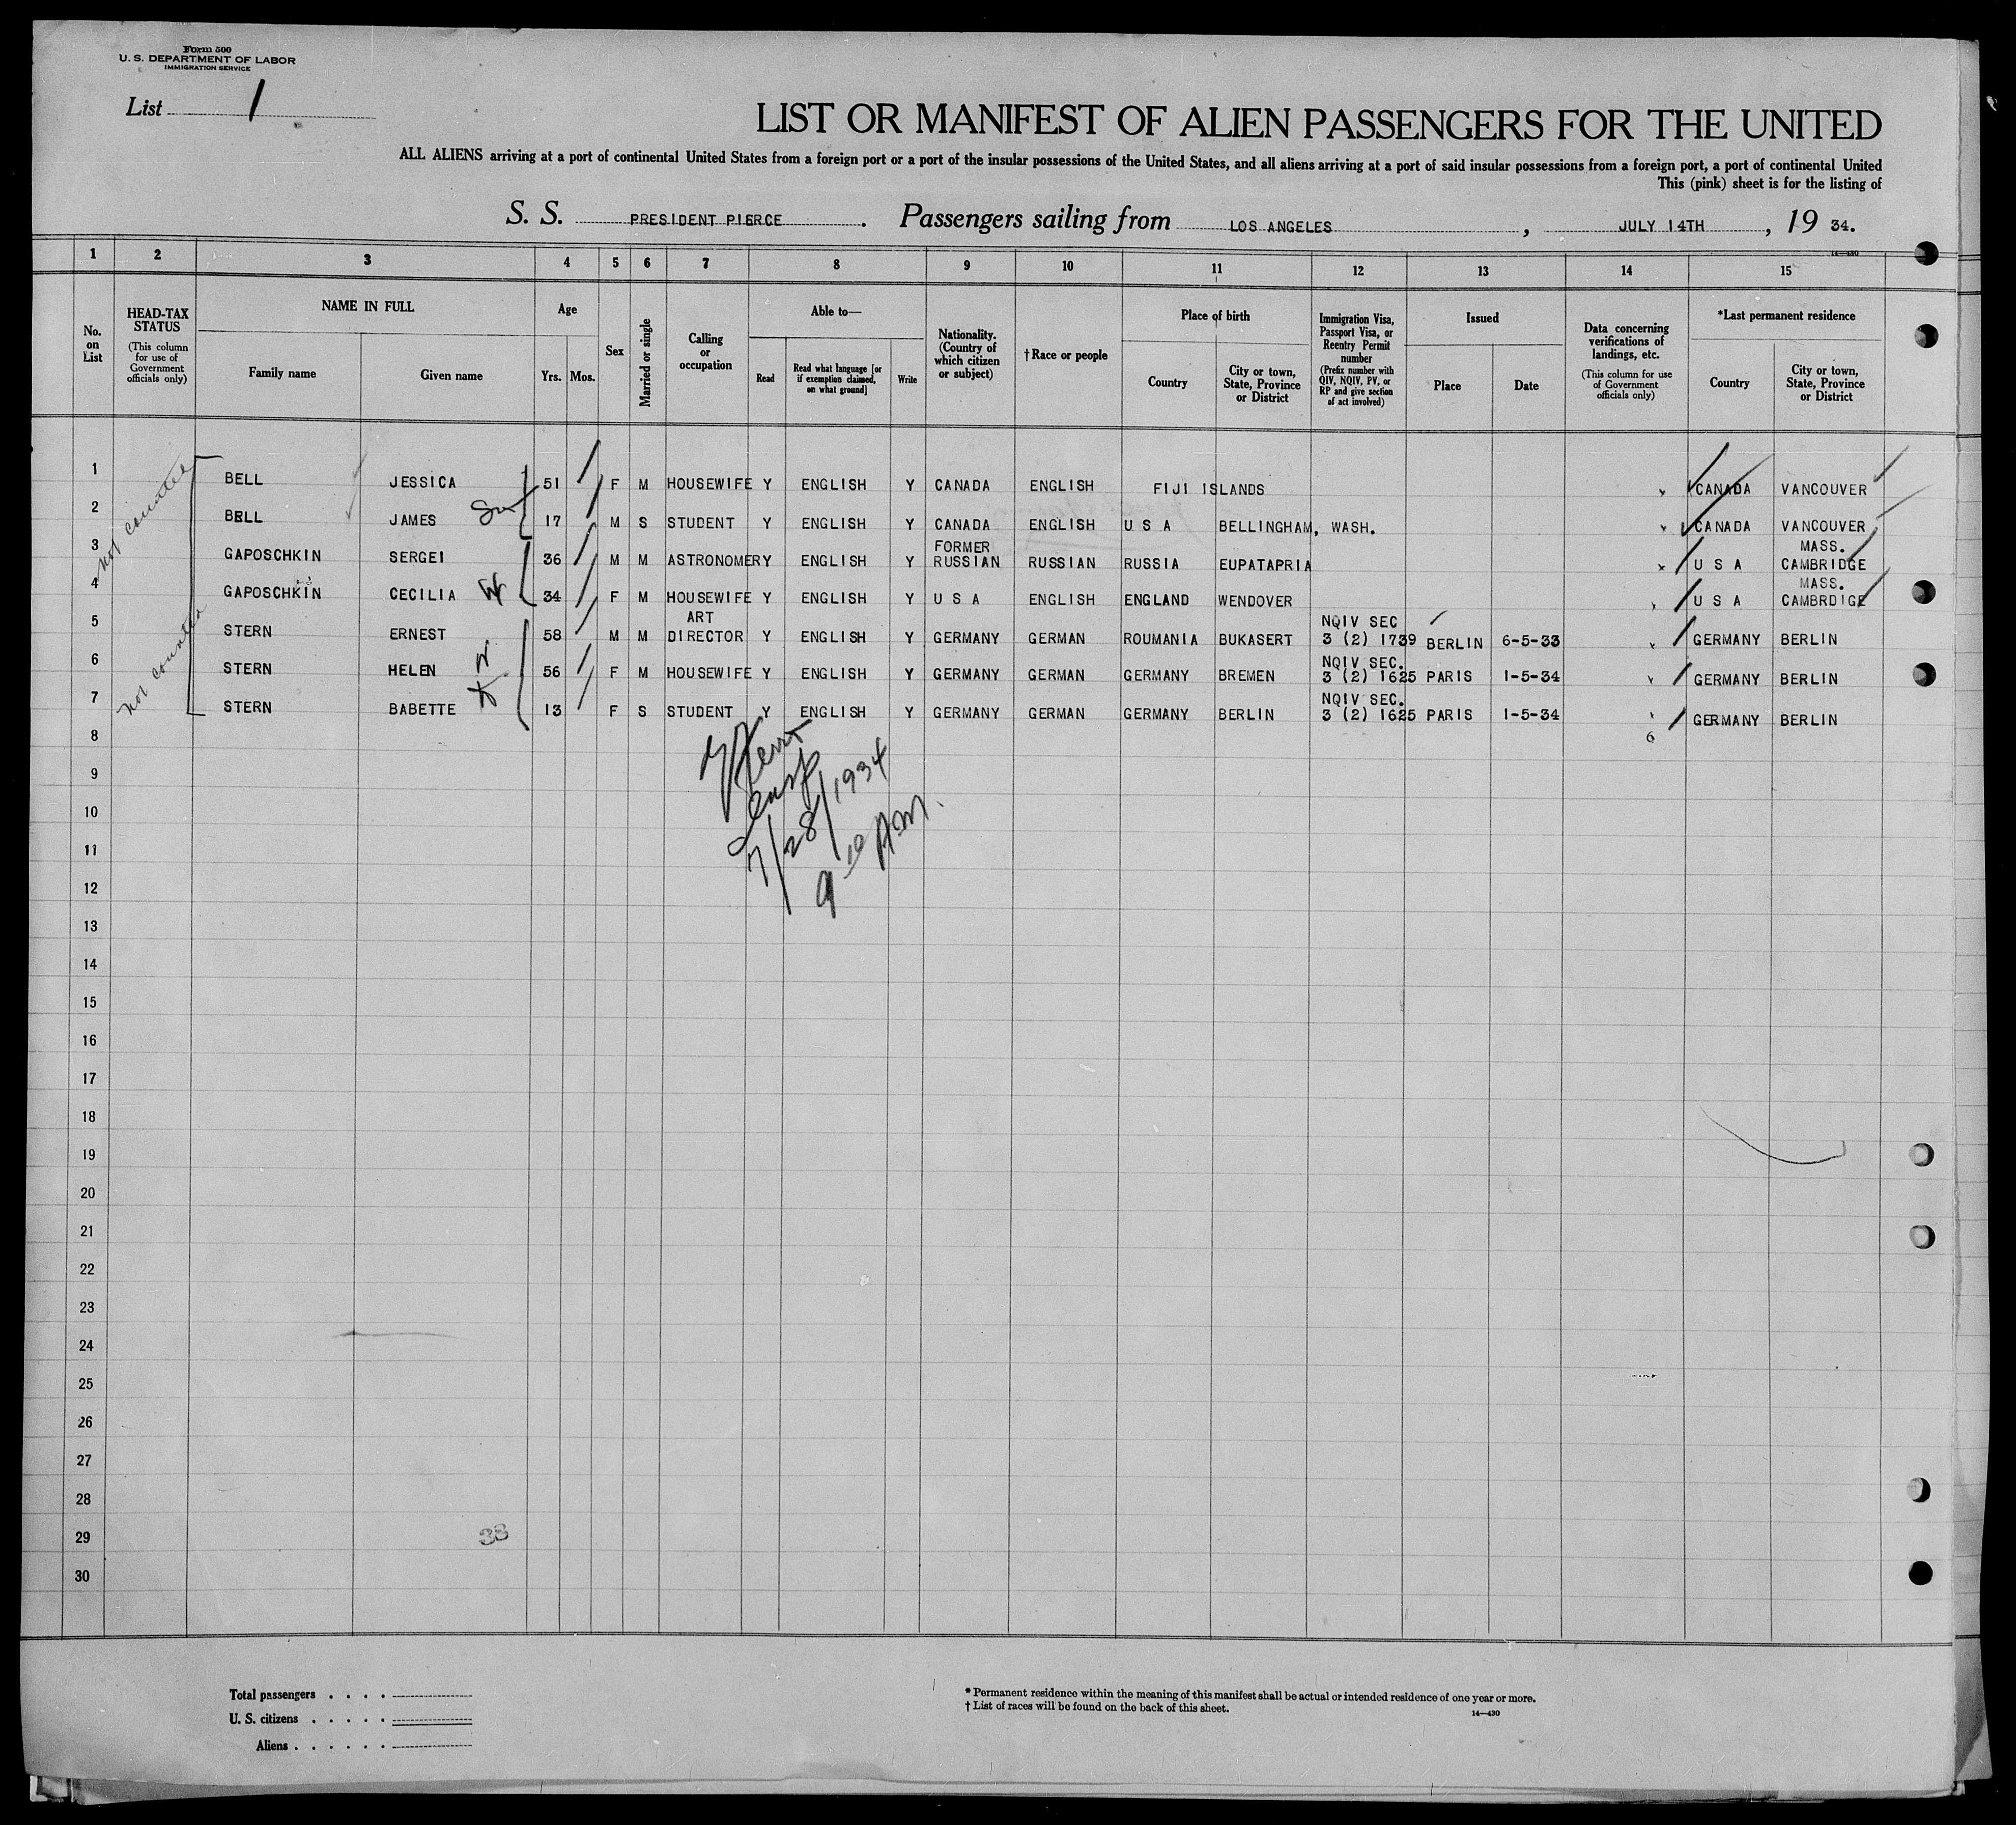 Form 500
U. S. DEPARTMENT OF LABOR
IMMIGRATION SERVICE
List 1
LIST OR MANIFEST OF ALIEN PASSENGERS FOR THE UNITED
ALL ALIENS arriving at a port of continental United States from a foreign port or a port of the insular possessions of the United States, and all aliens arriving at a port of said insular possessions from a foreign port, a port of continental United
This (pink) sheet is for the listing of
S. S. PRESIDENT PIERCE. Passengers sailing from LOS ANGELES, JULY 14TH, 19 34.
14—430
1 2 3 4 5 6 7 8 9 10 11 12 13 14 15
No. on List
HEAD-TAX STATUS (This column for use of Government officials only)
NAME IN FULL
Family name
Given name
Age
Yrs. Mos.
Sex
Married or single
Calling or occupation
Able to—
Read
Read what language [or if exemption claimed, on what ground]
Write
Nationality. (Country of which citizen or subject)
†Race or people
Place of birth
Country
City or town, State, Province or District
Immigration Visa, Passport Visa, or Reentry Permit number (Prefix number with QIV, NQIV, PV, or RP and give section of act involved)
Issued
Place
Date
Data concerning verifications of landings, etc. (This column for use of Government officials only)
*Last permanent residence
Country
City or town, State, Province or District
not counted
not counted
1 BELL JESSICA 51 F M HOUSEWIFE Y ENGLISH Y CANADA ENGLISH FIJI ISLANDS CANADA VANCOUVER
2 BELL JAMES Son 17 M S STUDENT Y ENGLISH Y CANADA ENGLISH U S A BELLINGHAM, WASH. CANADA VANCOUVER
FORMER MASS.
3 GAPOSCHKIN SERGEI 36 M M ASTRONOMER Y ENGLISH Y RUSSIAN RUSSIAN RUSSIA EUPATAPRIA U S A CAMBRIDGE
MASS.
4 GAPOSCHKIN CECILIA W 34 F M HOUSEWIFE Y ENGLISH Y U S A ENGLISH ENGLAND WENDOVER U S A CAMBRDIGE
ART NQIV SEC
5 STERN ERNEST 58 M M DIRECTOR Y ENGLISH Y GERMANY GERMAN ROUMANIA BUKASERT 3 (2) 1739 BERLIN 6-5-33 GERMANY BERLIN
NQIV SEC.
6 STERN HELEN W 56 F M HOUSEWIFE Y ENGLISH Y GERMANY GERMAN GERMANY BREMEN 3 (2) 1625 PARIS 1-5-34 GERMANY BERLIN
NQIV SEC.
7 STERN BABETTE 13 F S STUDENT Y ENGLISH Y GERMANY GERMAN GERMANY BERLIN 3 (2) 1625 PARIS 1-5-34 GERMANY BERLIN
6
8
9
7/28/1934
10
11
9 10 AM.
12
13
14
15
16
17
18
19
20
21
22
23
24
25
26
27
28
29
33
30
Total passengers . . . .
U. S. citizens . . . . .
Aliens . . . . . .
* Permanent residence within the meaning of this manifest shall be actual or intended residence of one year or more.
† List of races will be found on the back of this sheet.
14—430